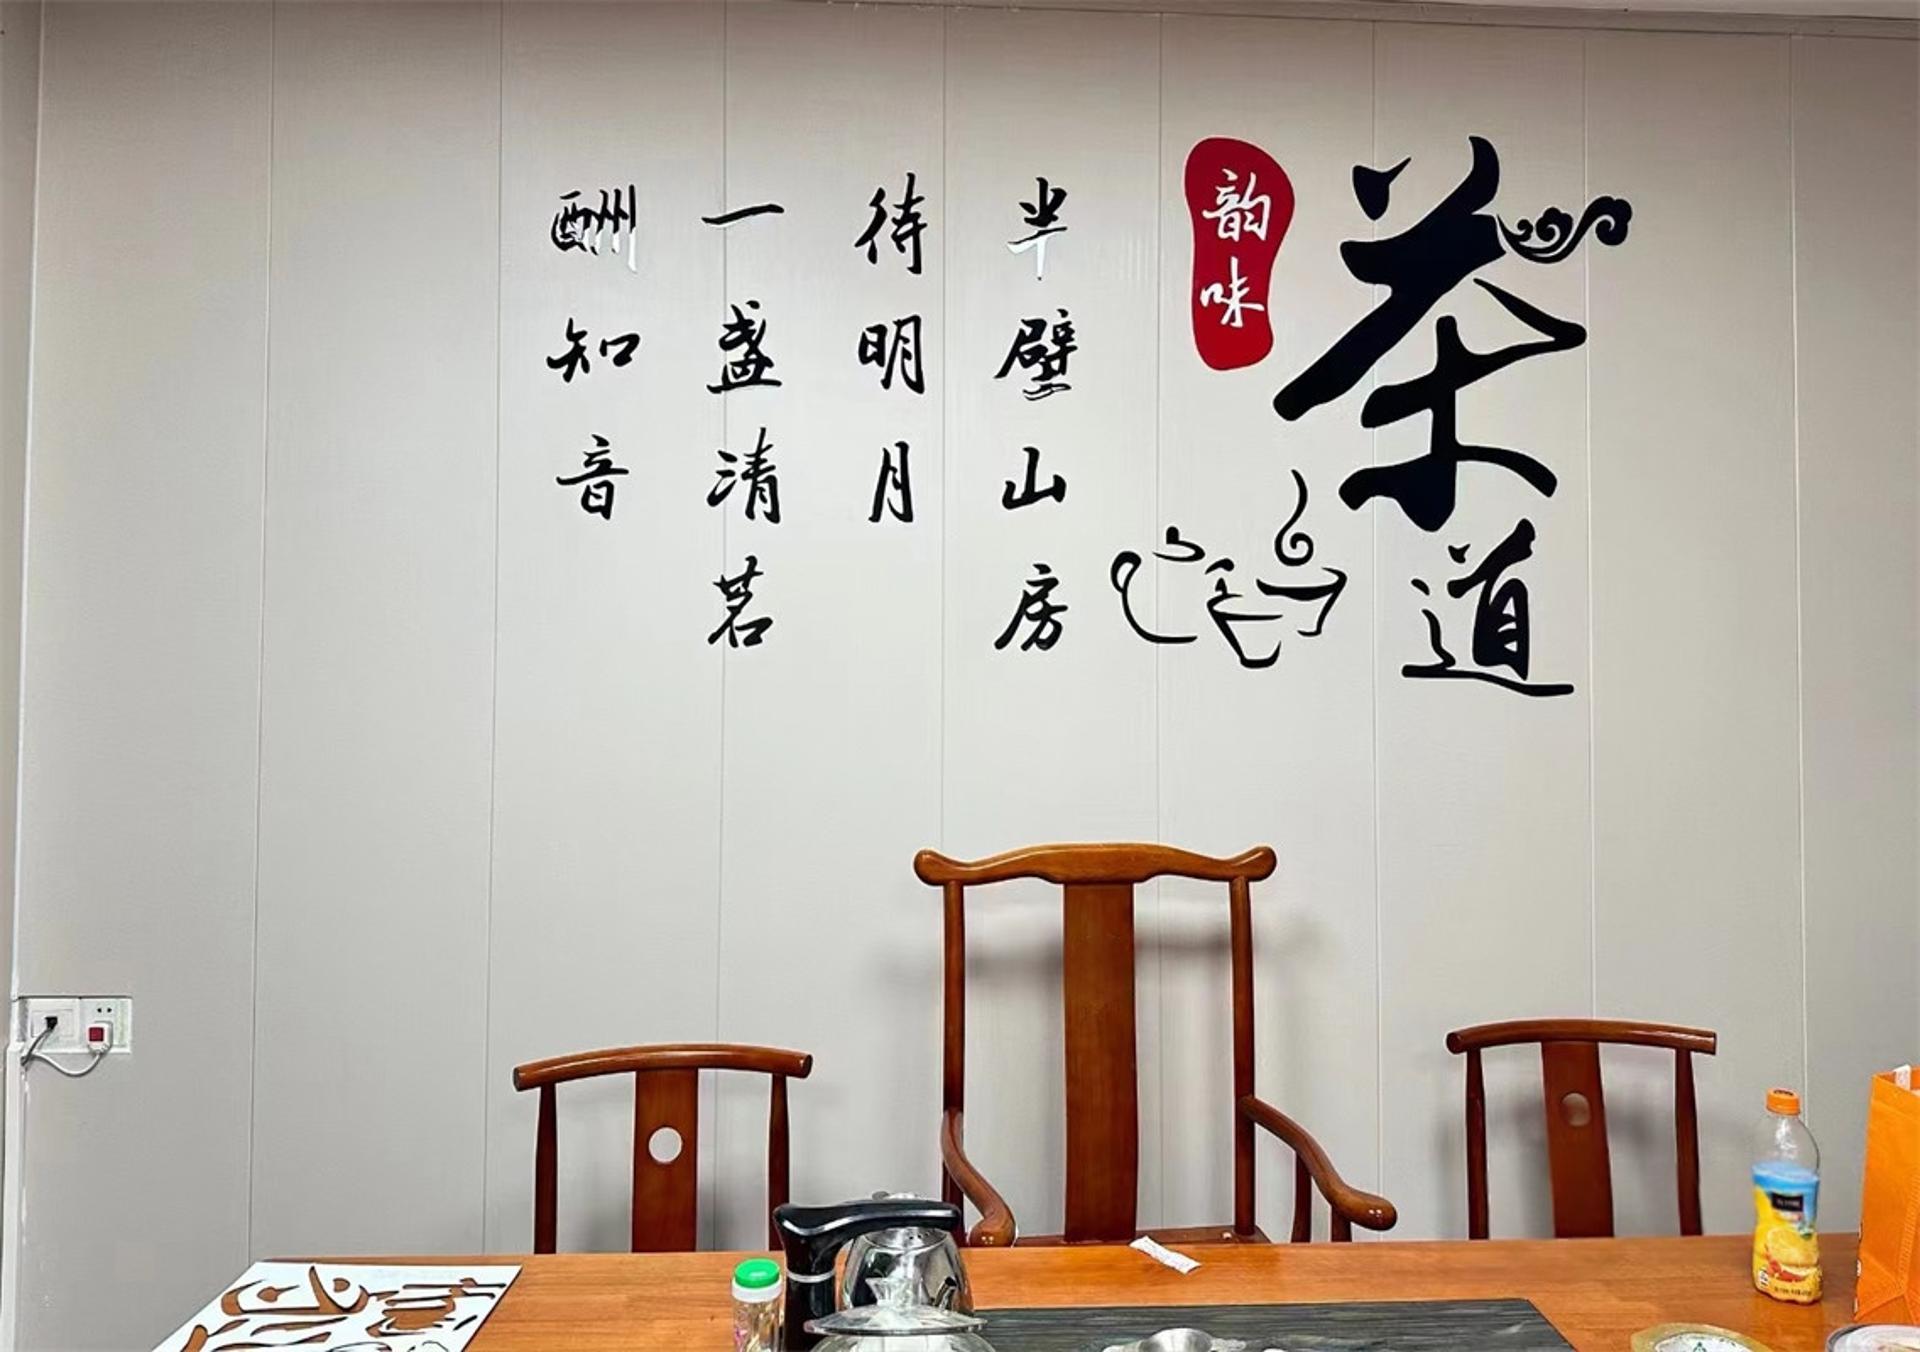 茶道
韵味
半壁山房
待明月
一盏清茗
酬知音